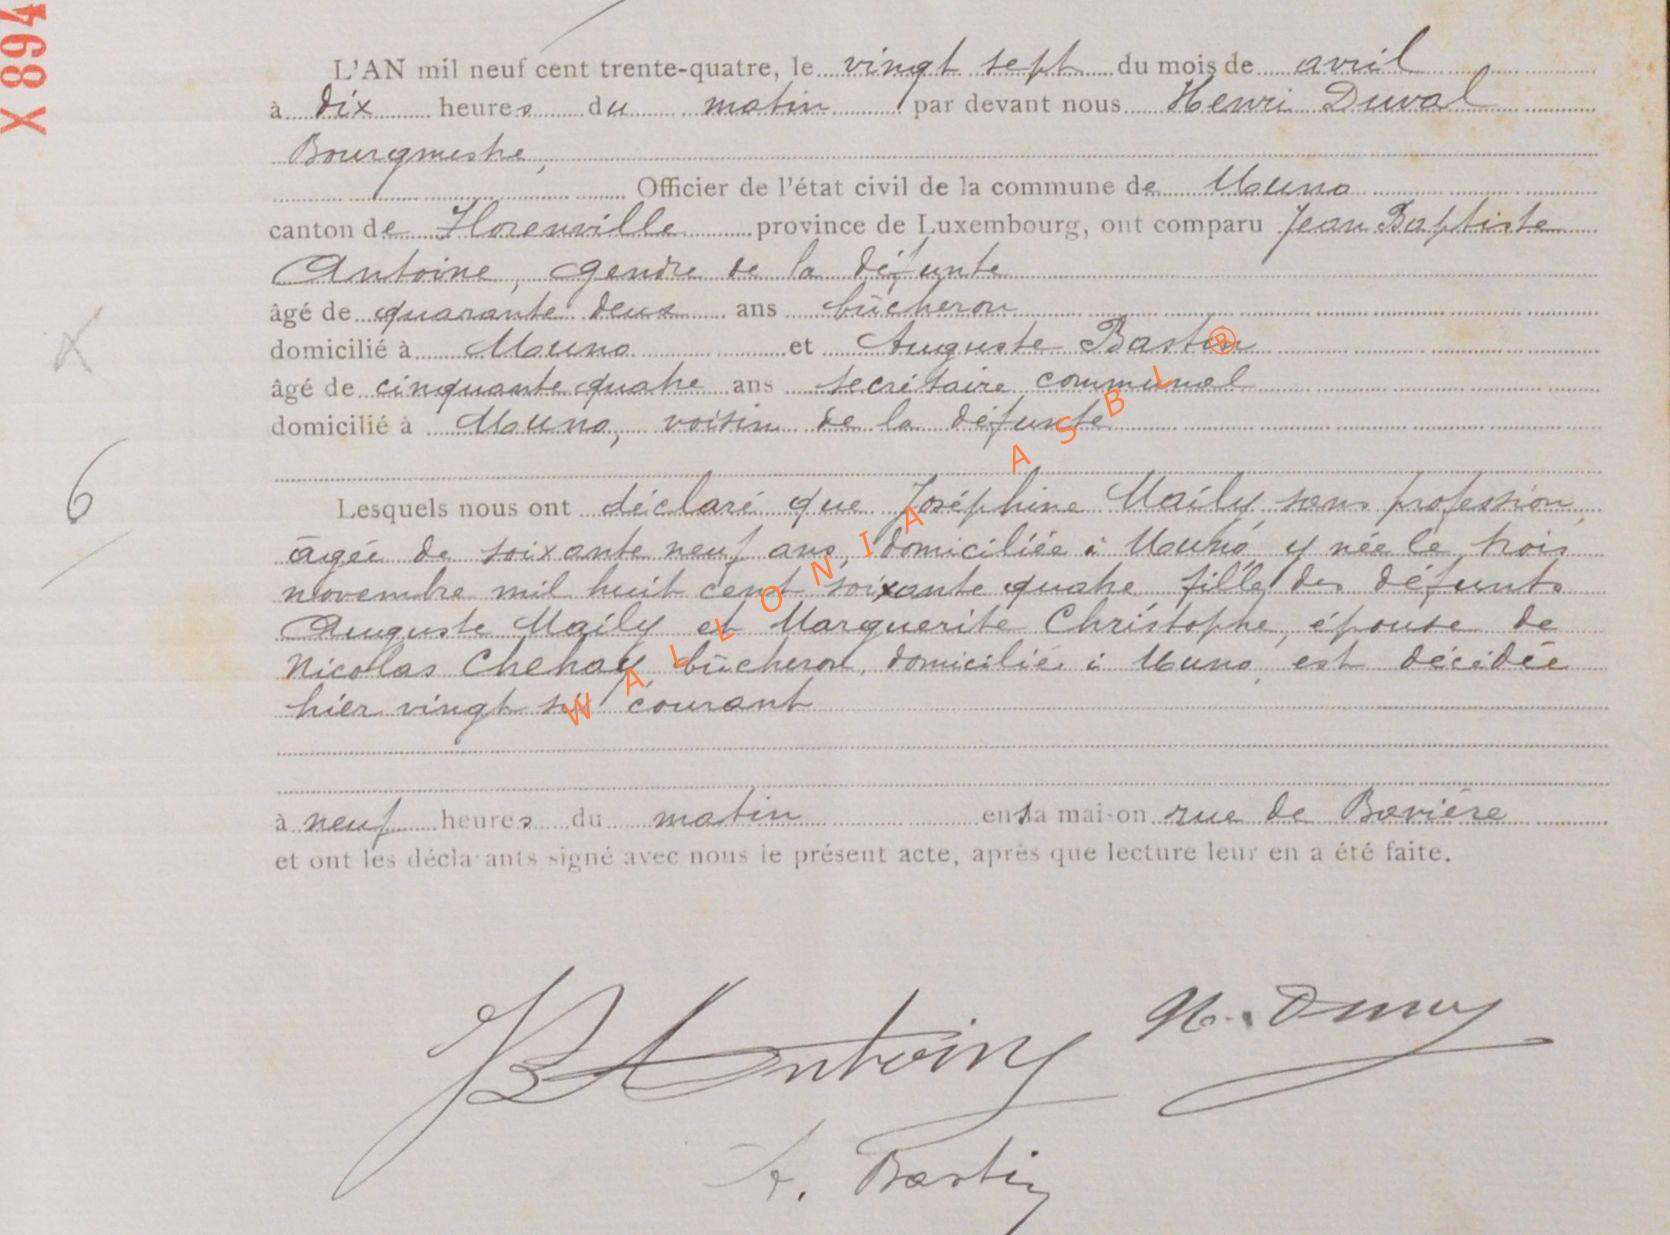 X 894
L'AN mil neuf cent trente-quatre, le vingt sept du mois de avril
à dix heures du matin par devant nous Henri Duval
Bourgmestre,
Officier de l'état civil de la commune de Muno
canton de Florenville province de Luxembourg, ont comparu Jean Baptiste
Antoine, gendre de la défunte
âgé de quarante deux ans bûcheron
domicilié à Muno et Auguste Bastin
âgé de cinquante quatre ans secrétaire communal
domicilié à Muno, voisin de la défunte
6
Lesquels nous ont déclaré que Joséphine Maily, sans profession,
âgée de soixante neuf ans, domiciliée à Muno, y née le trois
novembre mil huit cent soixante quatre fille des défunts
Auguste Maily et Marguerite Christophe, épouse de
Nicolas Chenay, bûcheron, domiciliée à Muno, est décédée
hier vingt six courant
à neuf heures du matin en sa maison rue de Bavière
et ont les déclarants signé avec nous le présent acte, après que lecture leur en a été faite.
JB Antoine
A. Bastin
WALLONIA ASBL ®